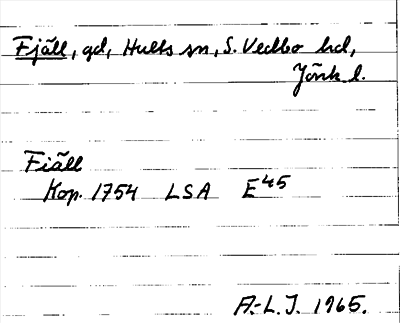 Fjäll, gd, Hults sn, S. Vedbo hd,
Jönk. l.
Fiäll
Kop. 1754 LSA E45
A.-L.J. 1965.